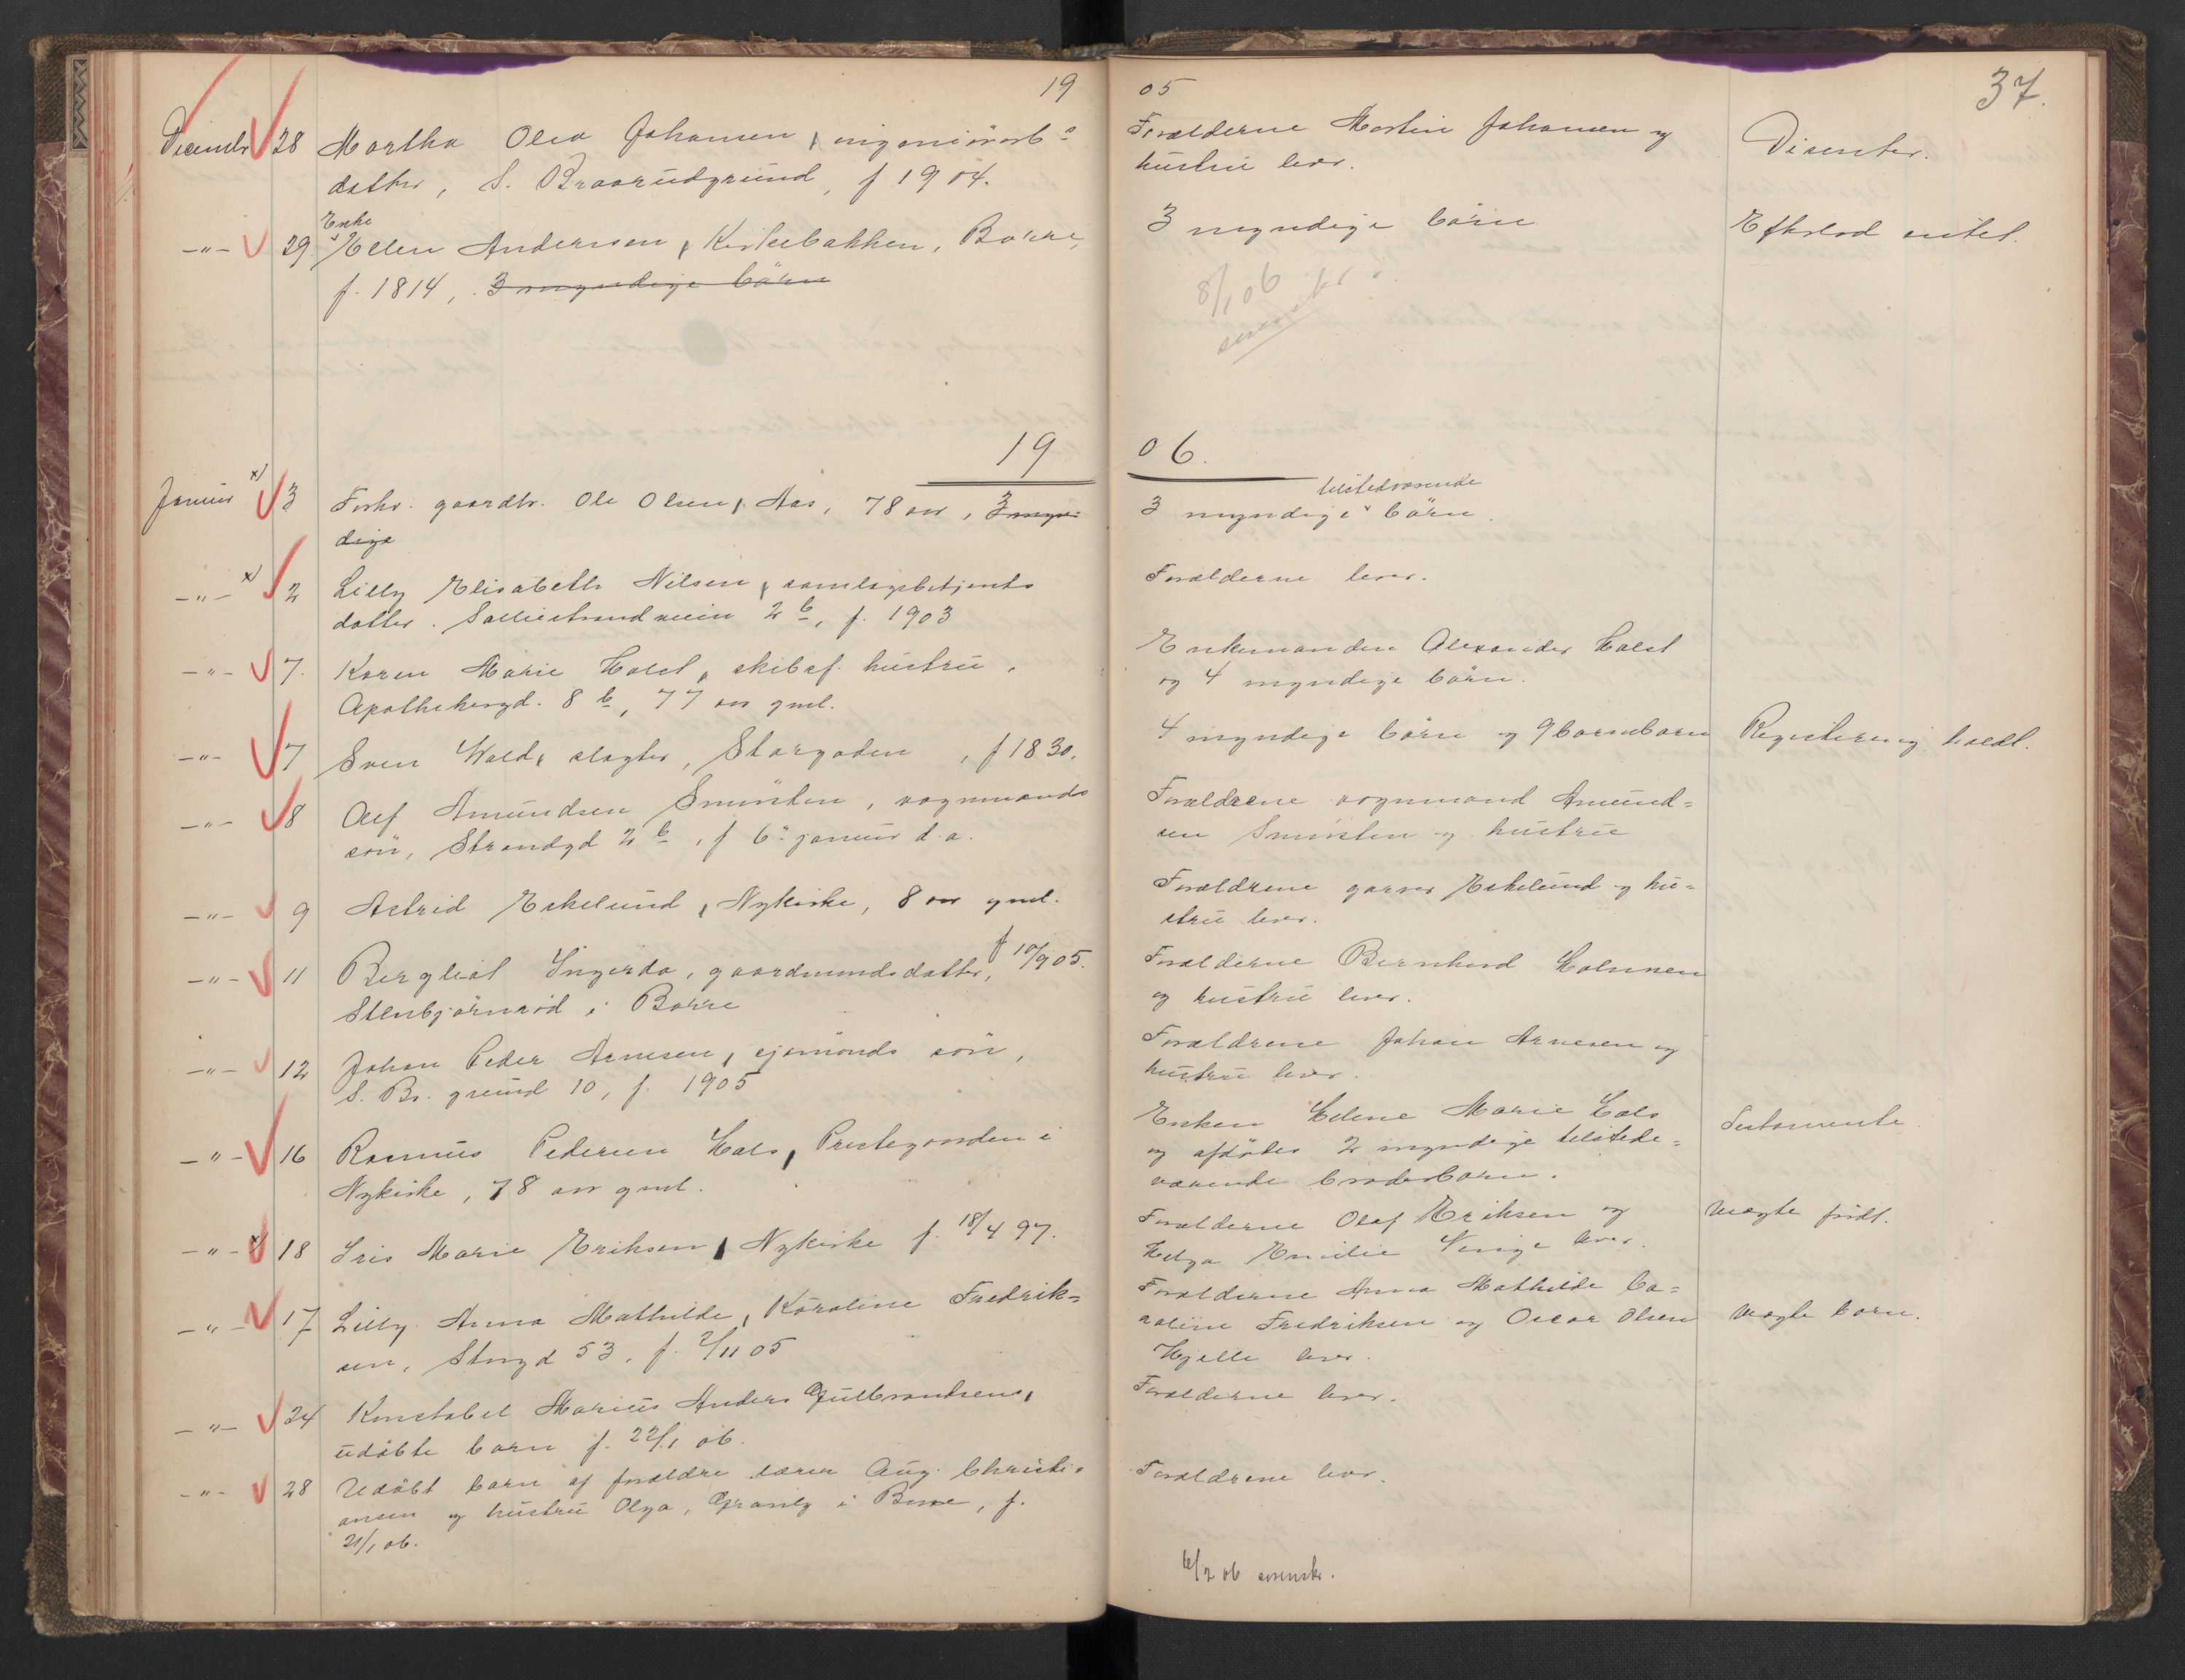 19 05 37.
Decembr 28 Martha Olea Johansen, datter, S. Braarudgrund, f 1904.
Forælderne Martin Johansen og
hustru lever.
Disenter.
Enke
-"- 29 Ellen Andersen, Kirkebakken, Borre,
f. 1814, 3 myndige börn
3 myndige börn
8/1 06
19 06.
Januar x) 3 Forhv. gaardbr. Ole Olsen, Aas, 78 aar, 3 myn-
dige
tilstedværende
3 myndige börn.
-"- x) 2 Lilly Elisabeth Nilsen, samlagsbetjents
datter. Solliestrandveien 2 b, f. 1903
Forælderne lever.
-"- 7. Karen Marie Holst, skibsf. hustru,
Apothekergd. 8 b, 77 aar gml.
Enkemanden Alexander Holst
og 4 myndige börn.
-"- 7 Sven Wold, slagter, Storgaden, f 1830.
4 myndige börn og 9 barnebarn
Registrering holdt.
-"- 8 Alf Amundsen Smörsten, vognmands
sön, Strandgd 2 b, f 6te januar d. a.
Forældrene vognmand Amund-
sen Smörsten og hustru
-"- 9 Astrid Eskelund, Nykirke, 8 aar gml.
Forældrene garver Eskelund og hu-
stru lever.
-"- 11 Bergliot Ingerda, gaardmandsdatter, f 10/9 05.
Stenbjörnröd i Borre
Forælderne Bernhard
og hustru lever.
-"- 12 Johan Peder Arnesen, sjömands sön,
S. Br. grund 10, f. 1905
Forældrene Johan Arnesen og
hustru lever.
-"- 16 Rasmus Pedersen Hals, Prestegaarden i
Nykirke, 78 aar gml.
Enken Helene Marie Hals
og afdödes 2 myndige tilstede-
værende broderbarn.
Testamente
-"- x 18 Iris Marie Eriksen, Nykirke f. 18/4 97.
Forælderne Olaf Eriksen og
Helga Emilie lever.
Uægte födt.
-"- 17 Lilly Anna Mathilde, Karoline Fredrik-
sen, Storgd 53, f. 2/11 05
Forælderne Anna Mathilde Ca-
roline Fredriksen og Oscar Olsen
Hjelle lever.
Uægte barn.
-"- 24 Konstabel Marius Anders Gulbrandsens,
udöbte barn f. 22/1 06.
Forælderne lever.
-"- 28 Udöbt barn af forældre lærer Aug. Christi-
ansen og hustru Olga, Granly i Borre, f.
21/1 06.
Forældrene lever.
6/2 06